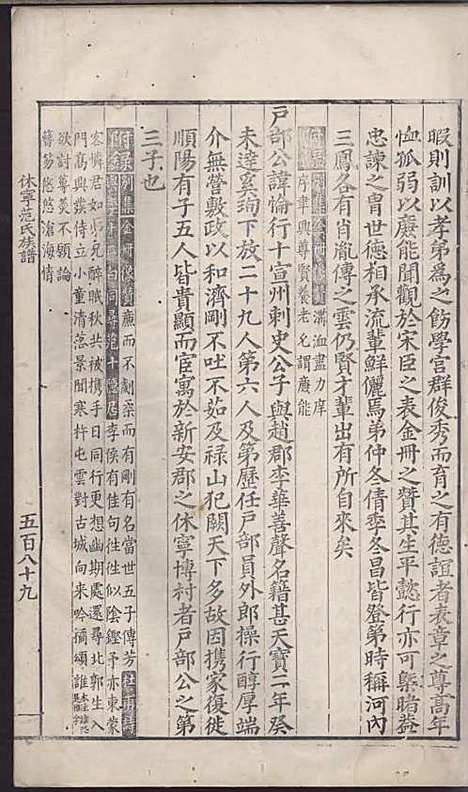 暇則訓以孝弟為之飭學官群俊秀而育之有德誼者表章之尊高年
恤孤弱以廉能聞觀於宋臣之表金冊之贊其生平懿行亦可槩睹葢
忠諫之胄世德相承流輩鮮儷焉弟仲冬倩季冬昌皆登第時稱河內
三鳳各有肖胤傳之云仍賢才輩出有所自來矣
序聿興尊賢養老允謂廉能
戶部公諱惀行十宣州刺史公子與趙郡李華善聲名籍甚天寶二年癸
未達奚珣下放二十九人第六人及第歷任戶部員外郎操行醇厚端
介無營敷政以和濟剛不吐不茹及禄山犯闕天下多故因携家復徙
順陽有子五人皆貴顯而宦寓於新安郡之休寧博村者戶部公之第
三子也
附錄 廉而不劌栗而有剛有名當世五子傳芳
李侯有佳句往往似陰鏗予亦東蒙
客憐君如弟兄醉眠秋共被携手日同行更想幽期處還尋北郭生入
門高興發侍立小童清落景聞寒杵屯雲對古城向來吟橘頌誰
欲討蓴羮不願論
簪笏悠悠滄海情
休寧范氏族譜
五百八十九